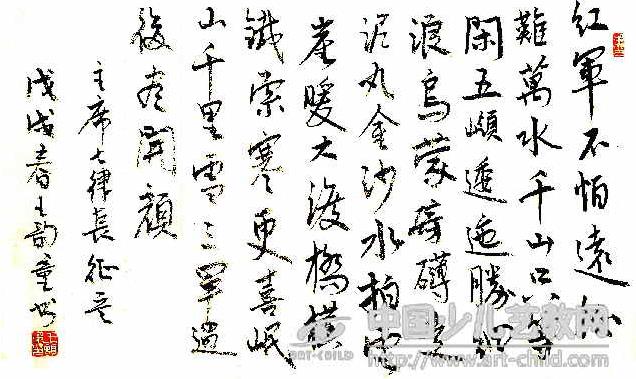 紅軍不怕遠征
難萬水千山只等
閑五嶺逶迤騰細
浪烏蒙磅礴走
泥丸金沙水拍雲
崖暖大渡橋橫
鐵索寒更喜岷
山千里雪三軍過
後盡開顏
主席七律長征
戊戌春
中国少儿艺教网
ART-CHILD
http://www.art-child.com